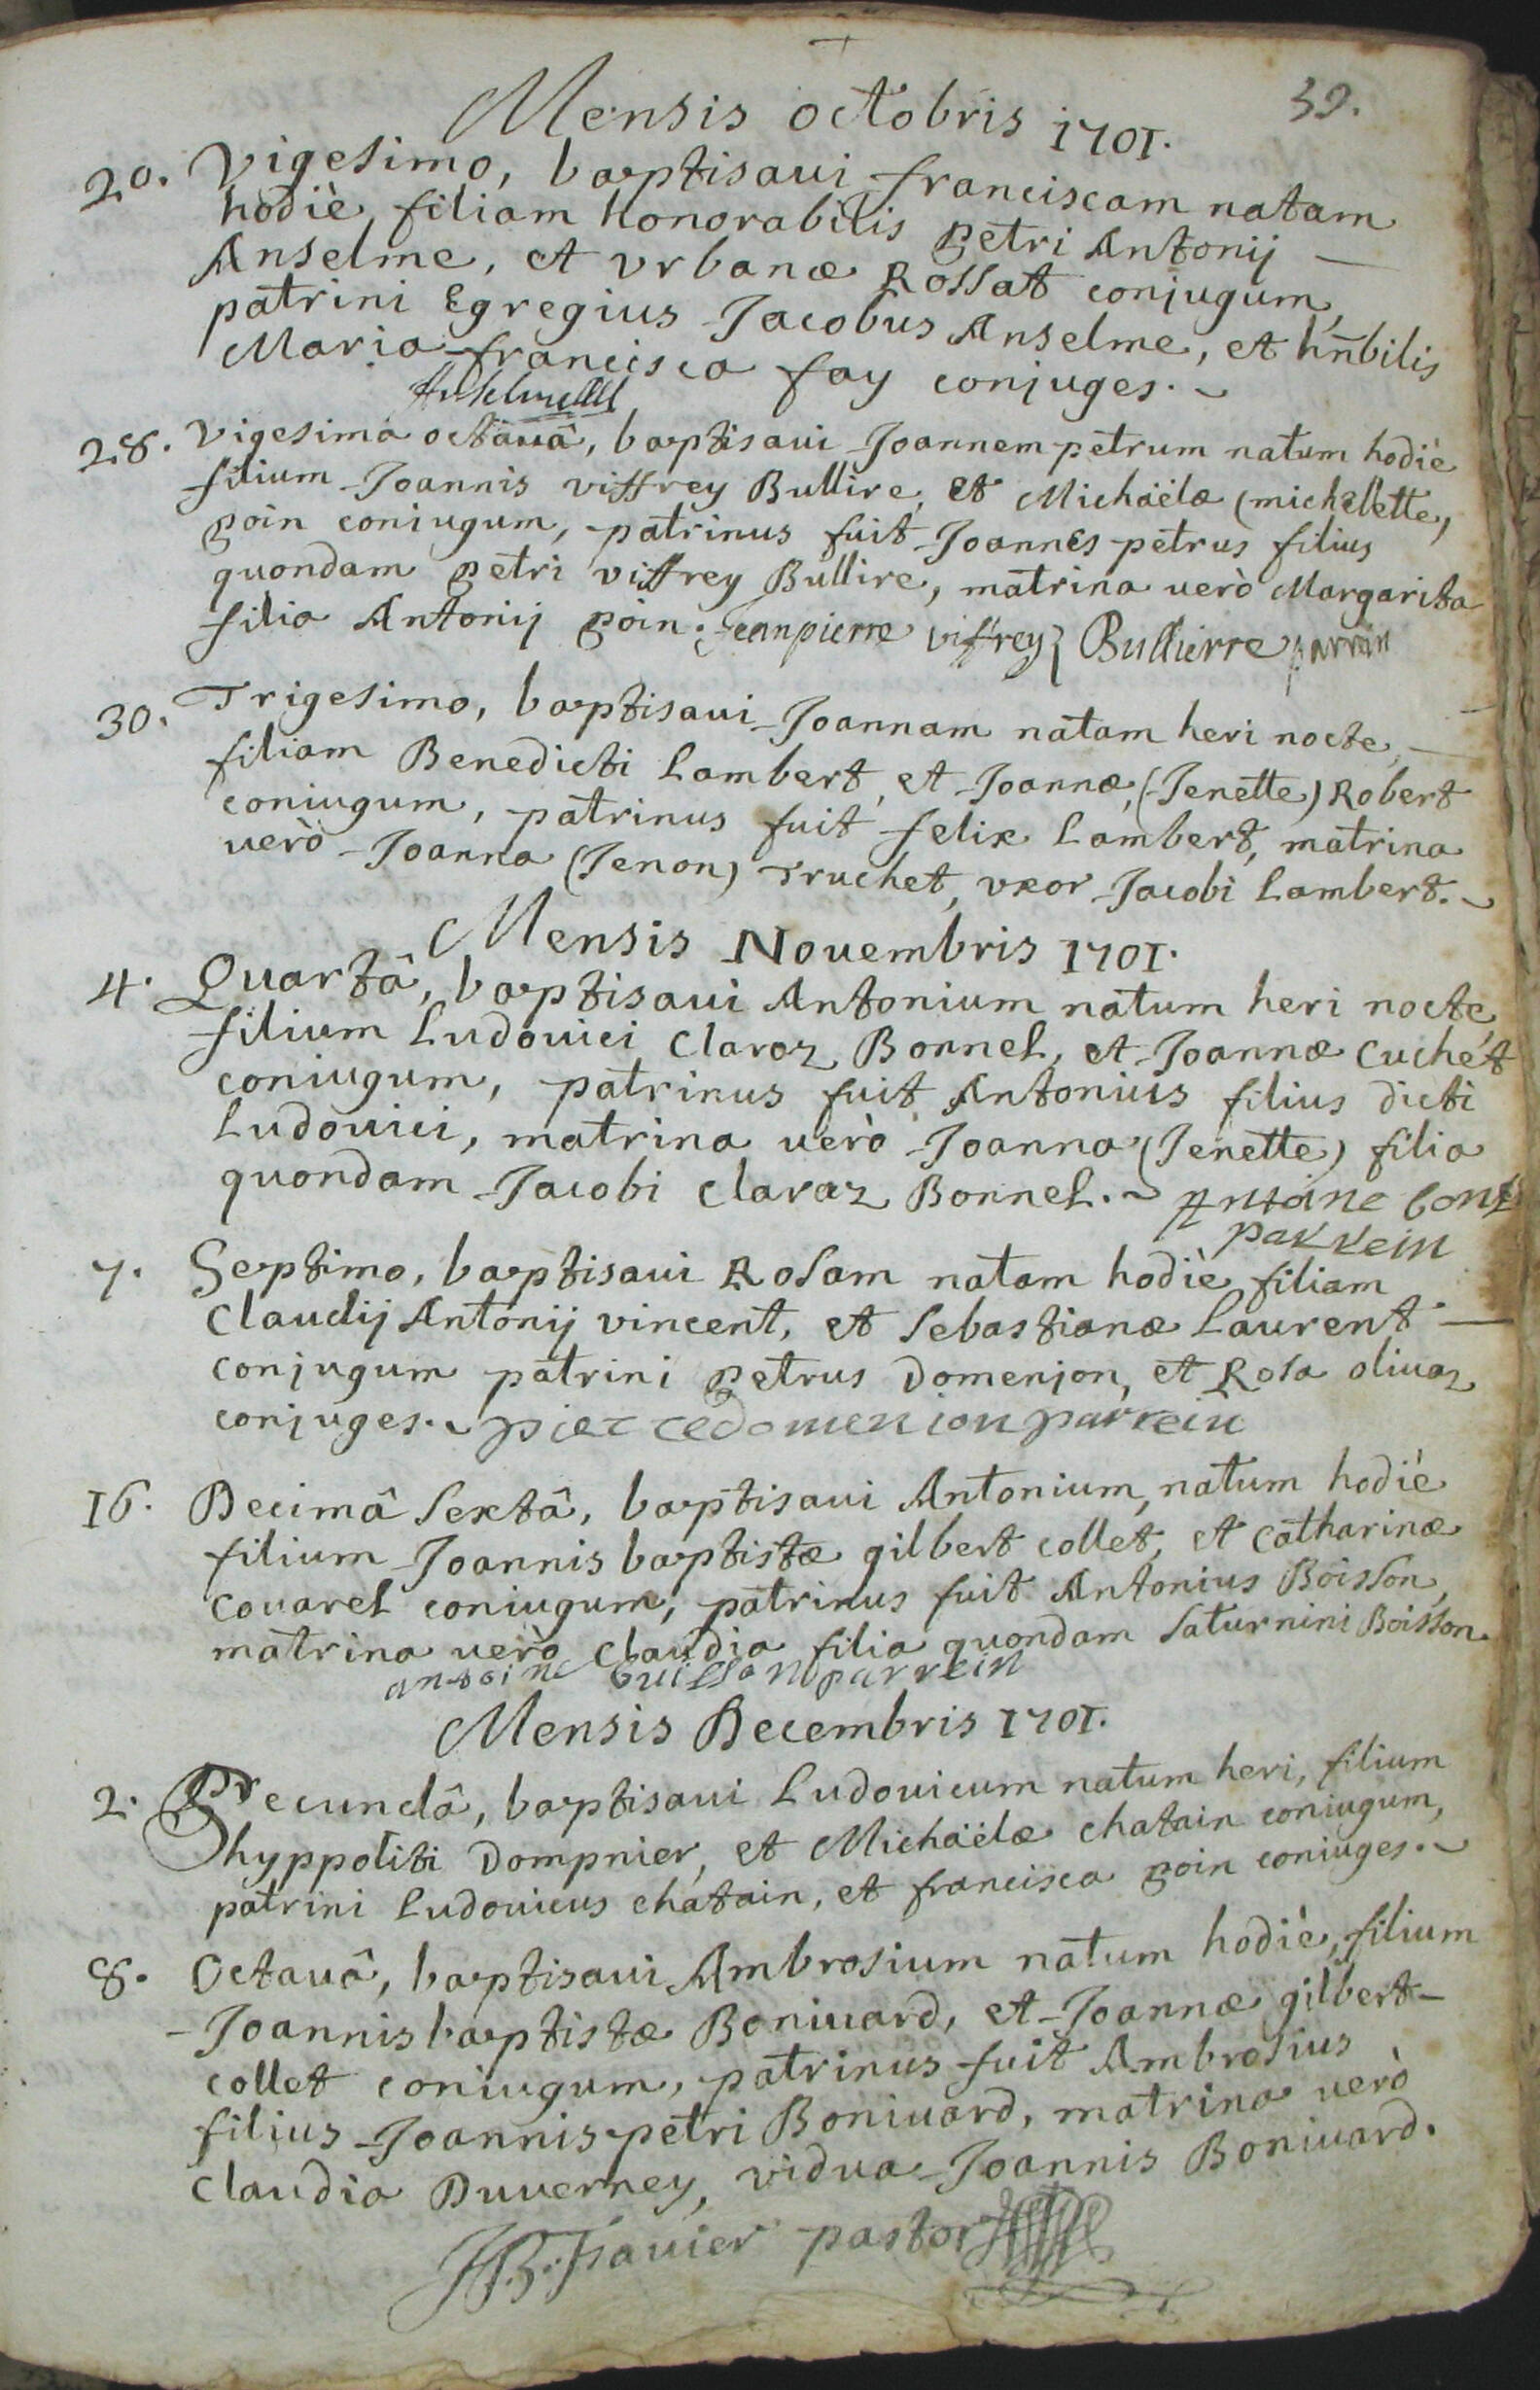 39.
Mensis octobris 1701.
20. Vigesimo, baptisaui franciscam natam
hodiè, filiam honorabilis petri Antonij —
Anselme, et vrbanæ Rossat conjugum,
patrini Egregius Jacobus Anselme, et hn̄bilis
Maria francisca fay conjuges.
Anselme
28. Vigesima octauâ, baptisaui Joannem petrum natum hodiè
filium Joannis viffrey Bullire, et Michaëlæ (michelette)
goin coniugum, patrinus fuit Joannes petrus filius
quondam petri viffrey Bullire, matrina uerò Margarita
filia Antonij goin. Jeanpierre viffrey Bullierre parrin
30. Trigesimo, baptisaui Joannam natam heri nocte, —
filiam Benedicti Lambert, et Joannæ, (Jenette) Robert
coniugum, patrinus fuit felix Lambert, matrina
uerò Joanna (Jenon) Truchet, vxor Jacobi Lambert.
Mensis Nouembris 1701.
4. Quartâ, baptisaui Antonium natum heri nocte,
filium Ludouici Claraz Bonnel, et Joannæ Cuchet
coniugum, patrinus fuit Antonius filius dicti
Ludouici, matrina uerò Joanna (Jenette) filia
quondam Jacobi Claraz Bonnel. Antoine bonel
parrein
7. Septimo, baptisaui Rosam natam hodiè, filiam
Claudij Antonij vincent, et Sebastianæ Laurent —
conjugum patrini petrus Domenjon, et Rosa oliuaz
conjuges. pierre domenion parrein
16. Decimâ Sextâ, baptisaui Antonium, natum hodiè
filium Joannis baptistæ gilbert collet, et Catharinæ
Couarel coniugum, patrinus fuit Antonius Boisson,
matrina uerò Claudia filia quondam Saturnini Boisson.
antoine buisson parrein
Mensis Decembris 1701.
2. Secundâ, baptisaui Ludouicum natum heri, filium
hyppoliti Dompnier, et Michaëlæ chatain coniugum,
patrini Ludouicus chatain, et francisca goin coniuges.
8. Octauâ, baptisaui Ambrosium natum hodiè, filium
Joannis baptistæ Boniuard, et Joannæ gilbert-
collet coniugum, patrinus fuit Ambrosius
filius Joannis petri Boniuard, matrina uerò
Claudia Duuerney, vidua Joannis Boniuard.
pastor